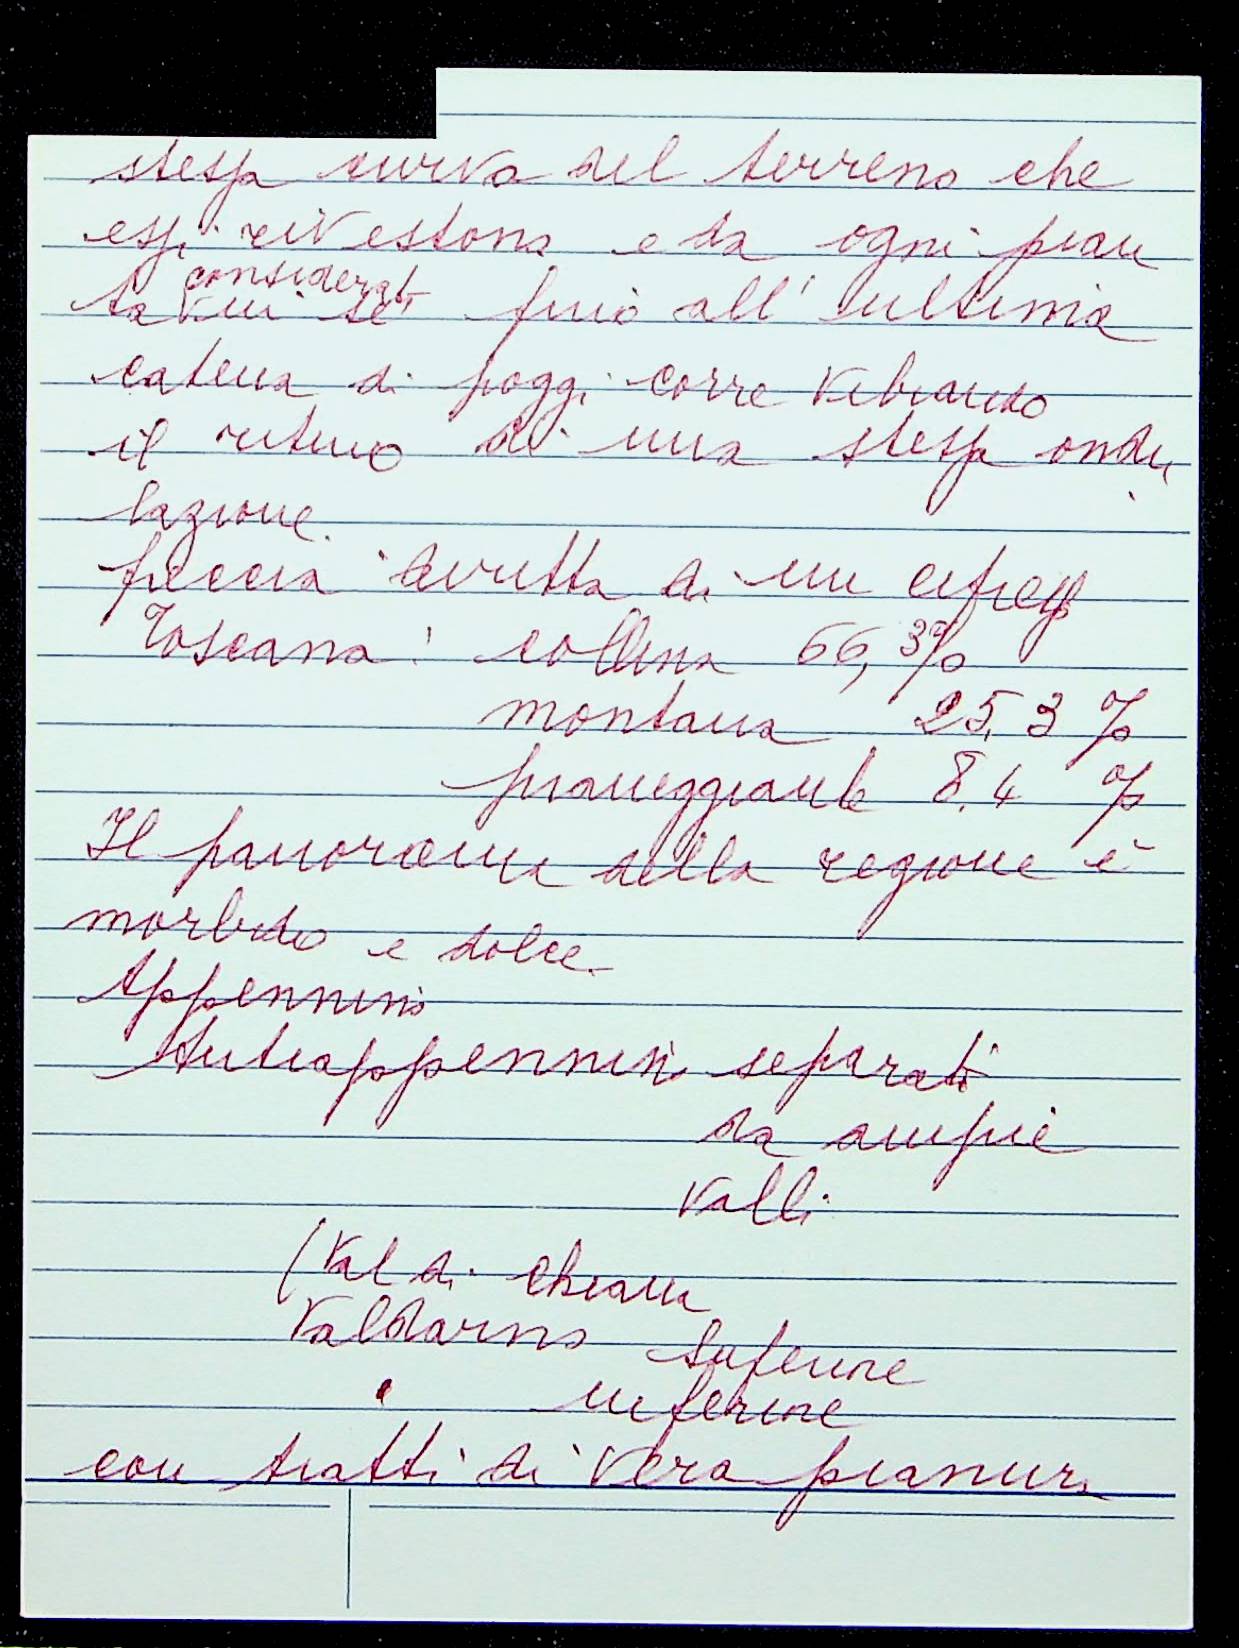 stessa curva del terreno che
essi rivestono e da ogni pian
considerata
ta in sé fino all' ultima
catena di poggi corre vibrando
il ritmo di una stessa ondu
lazione.
faccia di un
Toscana: collina 66,3%
montana 25,3 %
pianeggiante 8,4 %
Il panorama della regione è
morbido e dolce
Appennino
Antiappennini separati
da ampie
valli
(Val di Chiana
Valdarno Superiore
" inferiore
con tratti di vera pianura